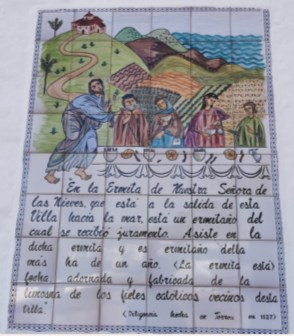 En la Ermita de Nuestra Señora de
las Nieves, que está a la salida de esta
Villa hacia la mar, está un ermitaño del
cual se recibió juramento. Asiste en la
dicha ermita y es ermitaño della
más ha de un año. (La ermita está)
fecha adornada y fabricada de la
limosna de los fieles católicos vecinos desta
Villa.
( hecha en Torrox en 1627)